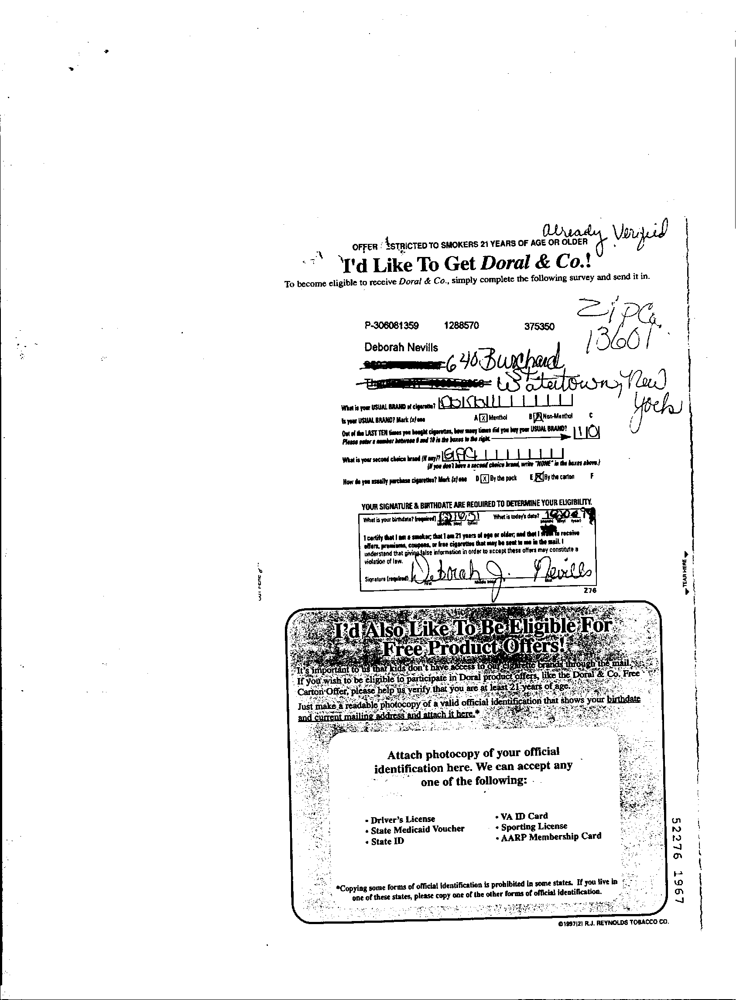 already Verified
OFFER STRICTED TO SMOKERS 21 YEARS OF AGE OR OLDER
I'd Like To Get Doral & Co.!
To become eligible to receive Doral & Co., simply complete the following survey and send it in.
Zip Co.
13601
P-306081359 1288570 375350
Deborah Nevills
640 Burchard
Watertown, New
York
What is your USUAL BRAND of cigarette?
Is your USUAL BRAND? Mark (x) one A X Menthol B Non-Menthol C
Out of the LAST TEN times you bought cigarettes, how many times did you buy your USUAL BRAND?
Please enter a number between 0 and 10 in the boxes to the right. 10
What is your second choice brand (if any)?
(If you don't have a second choice brand, write "NONE" in the boxes above.)
How do you usually purchase cigarettes? Mark (x) one D X By the pack E X By the carton F
YOUR SIGNATURE & BIRTHDATE ARE REQUIRED TO DETERMINE YOUR ELIGIBILITY.
What is your birthdate? (required) What is today's date?
I certify that I am a smoker; that I am 21 years of age or older; and that I want to receive
offers, premiums, coupons, or free cigarettes that may be sent to me in the mail. I
understand that giving false information in order to accept these offers may constitute a
violation of law.
Signature (required) Deborah J. Nevills
Z76
TEAR HERE
I'd Also Like To Be Eligible For
Free Product Offers!
It's important to us that kids don't have access to our cigarette brands through the mail.
If you wish to be eligible to participate in Doral product offers, like the Doral & Co. Free
Carton Offer, please help us verify that you are at least 21 years of age.
Just make a readable photocopy of a valid official identification that shows your birthdate
and current mailing address and attach it here.*
Attach photocopy of your official
identification here. We can accept any
one of the following:
• Driver's License
• State Medicaid Voucher
• State ID
• VA ID Card
• Sporting License
• AARP Membership Card
*Copying some forms of official identification is prohibited in some states. If you live in
one of these states, please copy one of the other forms of official identification.
52276 1967
©1997(2) R.J. REYNOLDS TOBACCO CO.